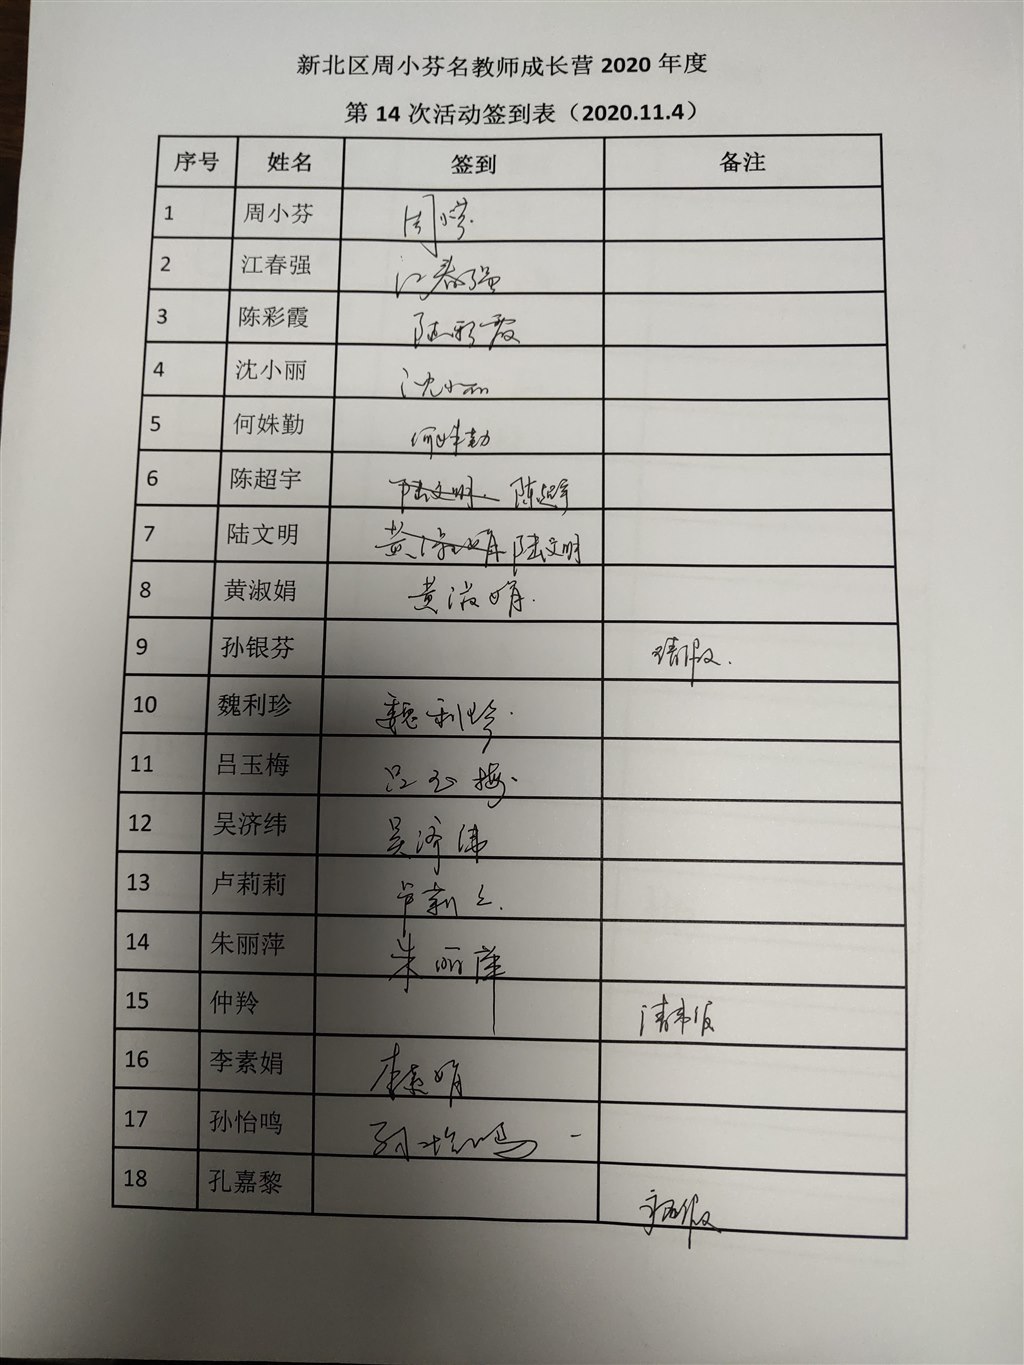 新北区周小芬名教师成长营 2020 年度
第 14 次活动签到表（2020.11.4）
序号 姓名 签到 备注
1 周小芬 周小芬
2 江春强 江春强
3 陈彩霞 陈彩霞
4 沈小丽 沈小丽
5 何姝勤 何姝勤
6 陈超宇 陆文明 陈超宇
7 陆文明 黄淑娟 陆文明
8 黄淑娟 黄淑娟
9 孙银芬 请假
10 魏利珍 魏利珍
11 吕玉梅 吕玉梅
12 吴济纬 吴济纬
13 卢莉莉 卢莉
14 朱丽萍 朱丽萍
15 仲羚 请假
16 李素娟 李素娟
17 孙怡鸣 孙怡鸣
18 孔嘉黎